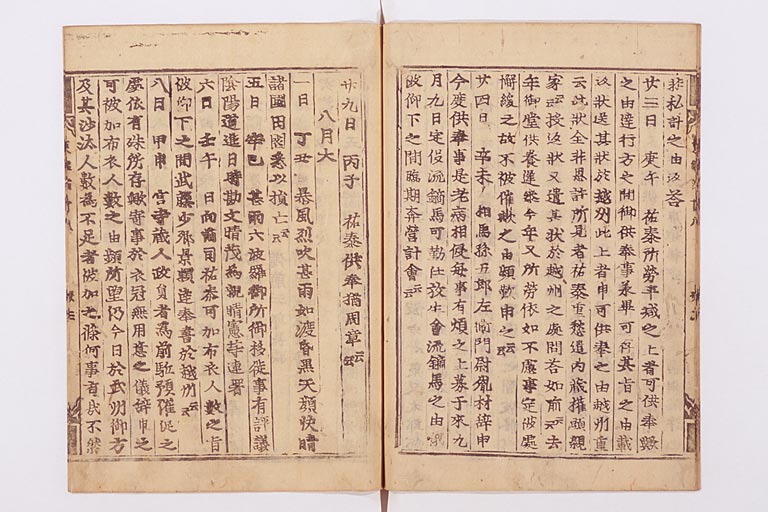 非私計之由返答
廿三日 庚午 祐泰所勞平減之上者可供奉歟
之由達行方之間御供奉事兼畢可存其旨之由載
返状送其状於越州此上者申可供奉之由越州重
云此状全非恩許所見者祐泰重愁遣内蔵權頭親
家云投返状又遣其状於越州之處問答如前云去
年御堂供養還 今年又所勞依如不慮事定被處
懈緩之故不被催歟之由頻歎申之云
廿四日 辛未 相馬孫五郎左衛門尉胤村辞申
今度供奉事是老病相侵毎事有煩之上募于來九
月九日定役流鏑馬可勤仕放生會流鏑馬之由
被仰下之間臨期奔營計會云云
廿九日 丙子 祐泰供奉猶周章云云
八月大
一日 丁丑 暴風烈吹甚雨如渡昏黒天顔快晴
諸國田園悉以損亡云云
五日 辛巳 甚雨六波羅御所御移徙事有評議
陰陽道進日時勘文晴茂為親晴憲等連署
六日 壬午 日向前司祐泰可加布衣人數之旨
被仰下之間武藤少卿景頼達奉書於越州云云
八日 甲申 宮寺蔵人政員者為前駈預催促之
處依有殊所存 寄事於衣冠無用意之儀辞申之
可被加布衣人數之由頻所望仍今日於武州御方
及其沙汰人數為不足者被加之條何事有哉不然